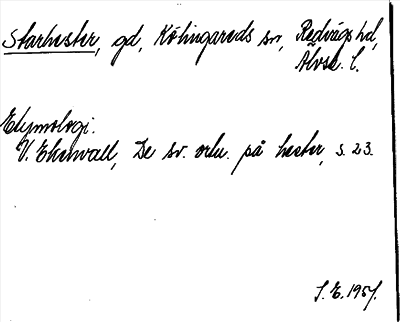 Starhester, gd, Kölingareds sn, Redvägs hd,
Älvsb. l.
Etymologi.
V. Ekenvall, De sv. ortn. på hester, s. 23.
S. E. 1951.